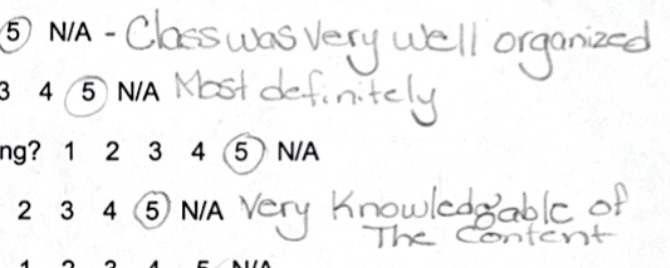 5 N/A - Class was very well organized
3 4 5 N/A Most definitely
ng? 1 2 3 4 5 N/A
2 3 4 5 N/A Very Knowledgable of
The Content
1 2 3 4 5 N/A